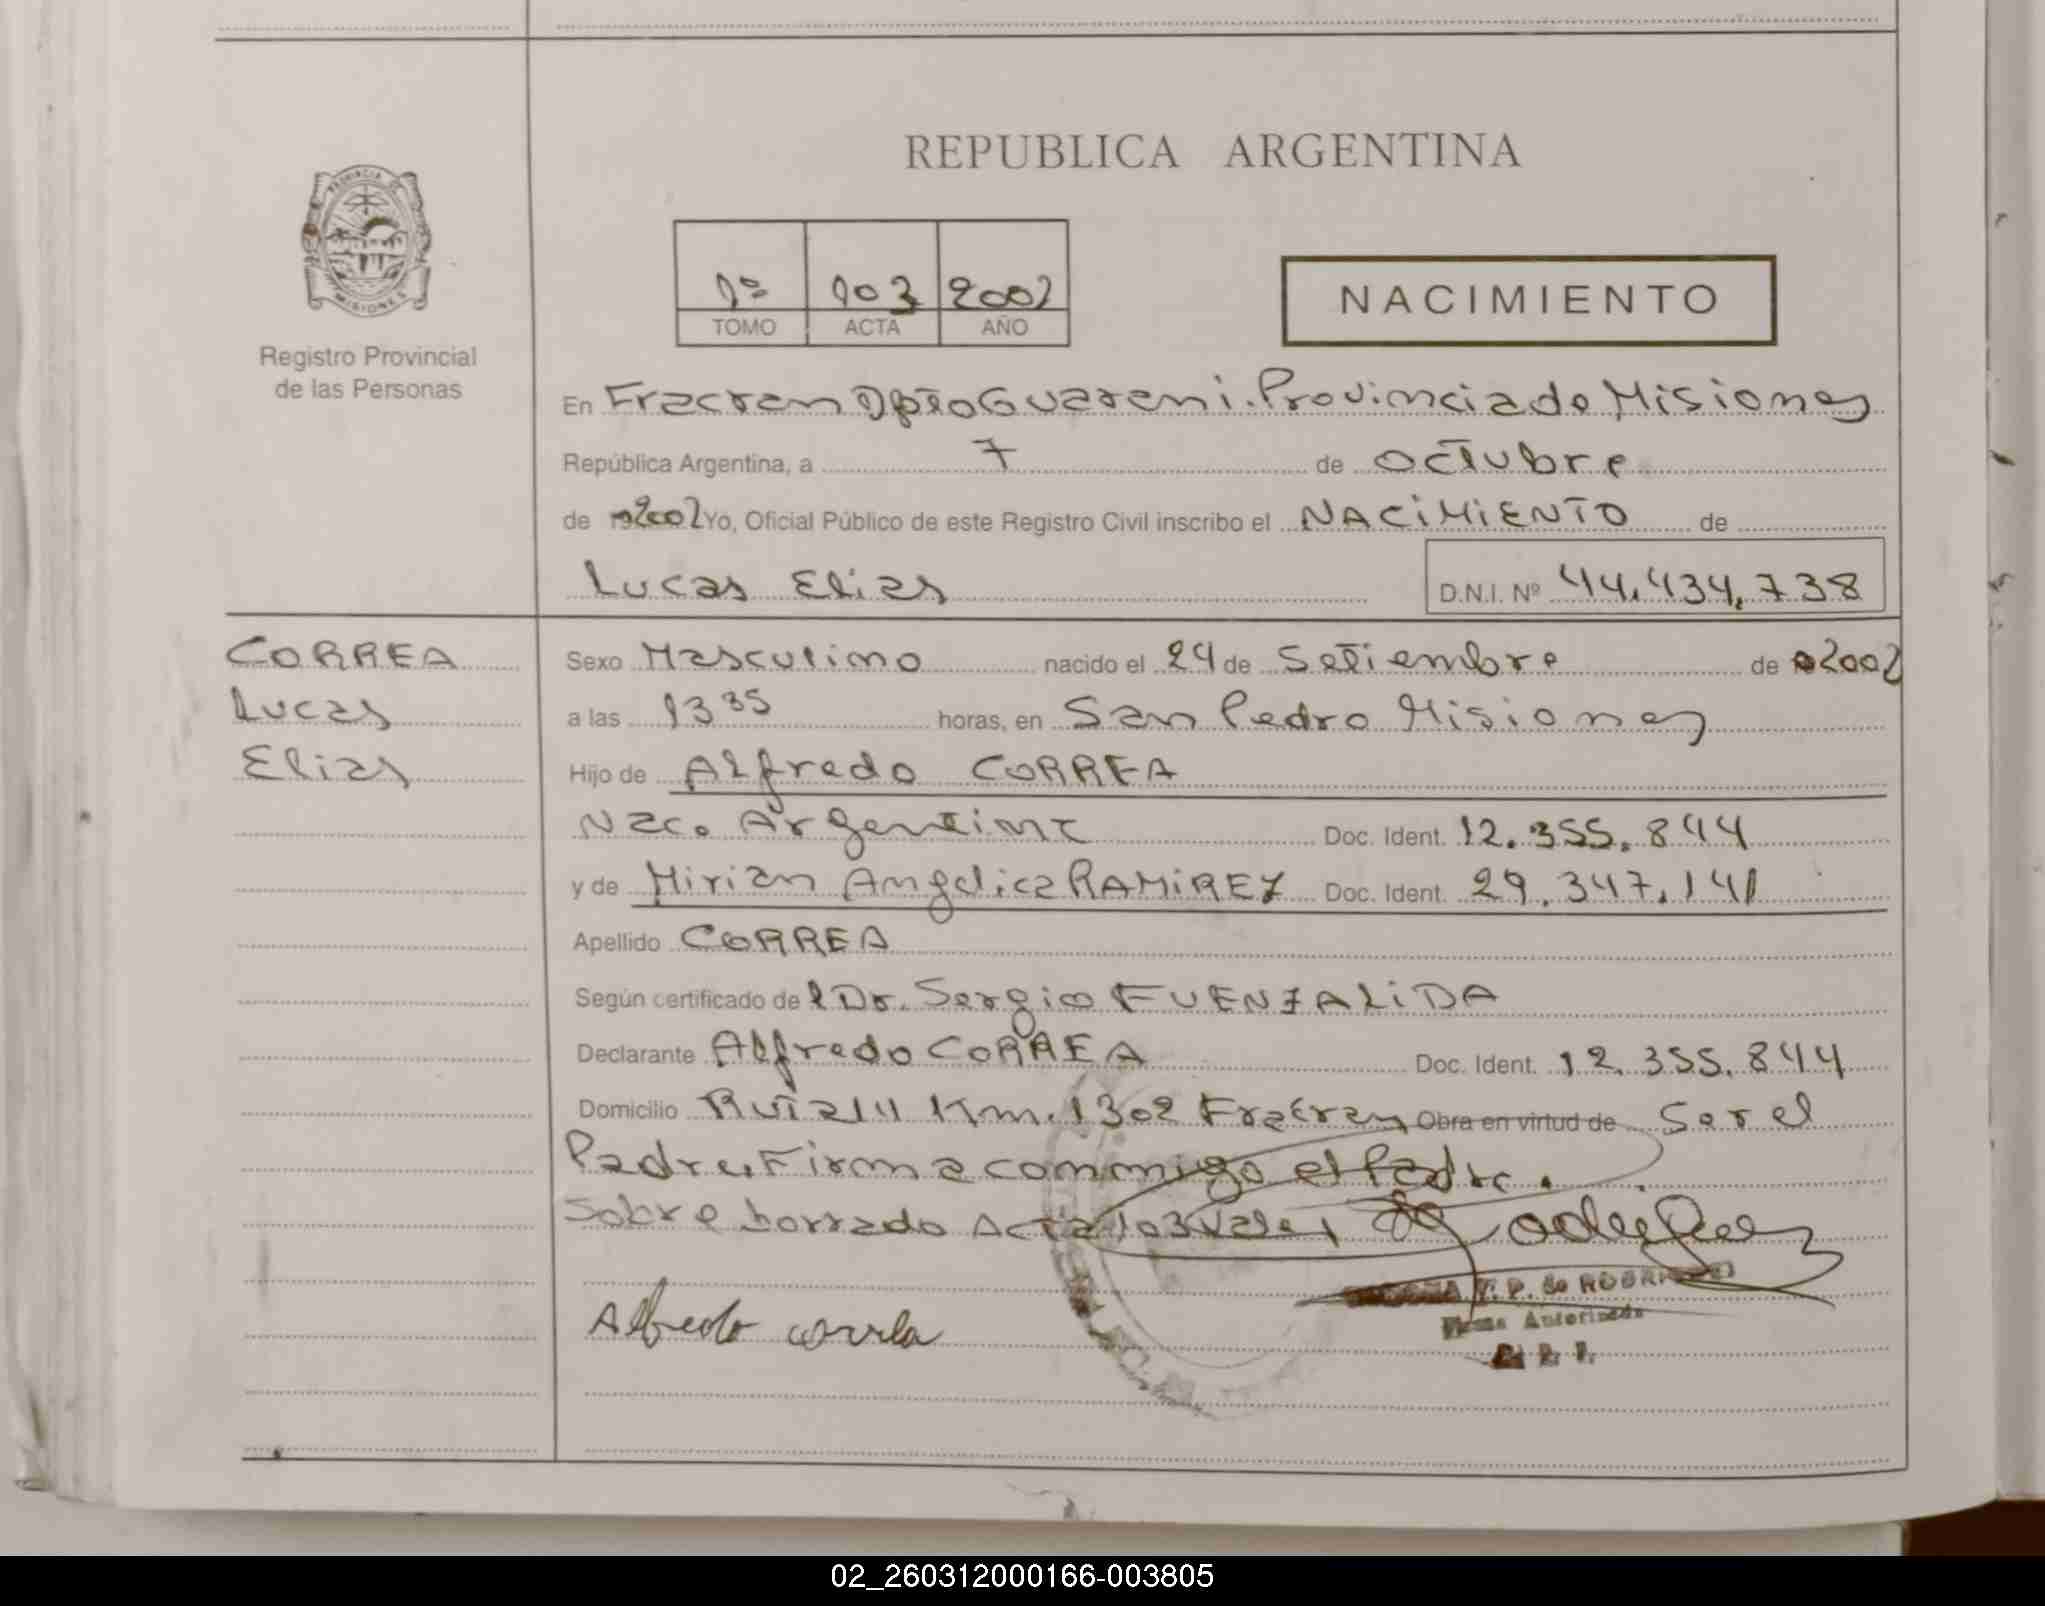 REPUBLICA ARGENTINA
PROVINCIA DE
MISIONES
Registro Provincial
de las Personas
1º 103 2002
TOMO ACTA AÑO
NACIMIENTO
En Fracran Dpto Guarani. Provincia de Misiones
República Argentina, a 7 de octubre
de 2002 Yo, Oficial Público de este Registro Civil inscribo el NACIMIENTO de
Lucas Elias D.N.I. Nº 44.434.738
CORREA
Lucas
Elias
Sexo Masculino nacido el 24 de Setiembre de 2002
a las 13 35 horas, en San Pedro Misiones
Hijo de Alfredo CORREA
Nac. Argentina Doc. Ident. 12.355.844
y de Mirian Angelica RAMIREZ Doc. Ident. 29.347.141
Apellido CORREA
Según certificado del Dr. Sergio FUENZALIDA
Declarante Alfredo CORREA Doc. Ident. 12.355.844
Domicilio Ruta 14 Km. 1302 Fracran Obra en virtud de Ser el
Padre. Firma conmigo el Padre.
Sobre borrado Acta 103 Vale
Alfredo correa
V. P. de RODRIGUEZ
Firma Autorizada
02_260312000166-003805